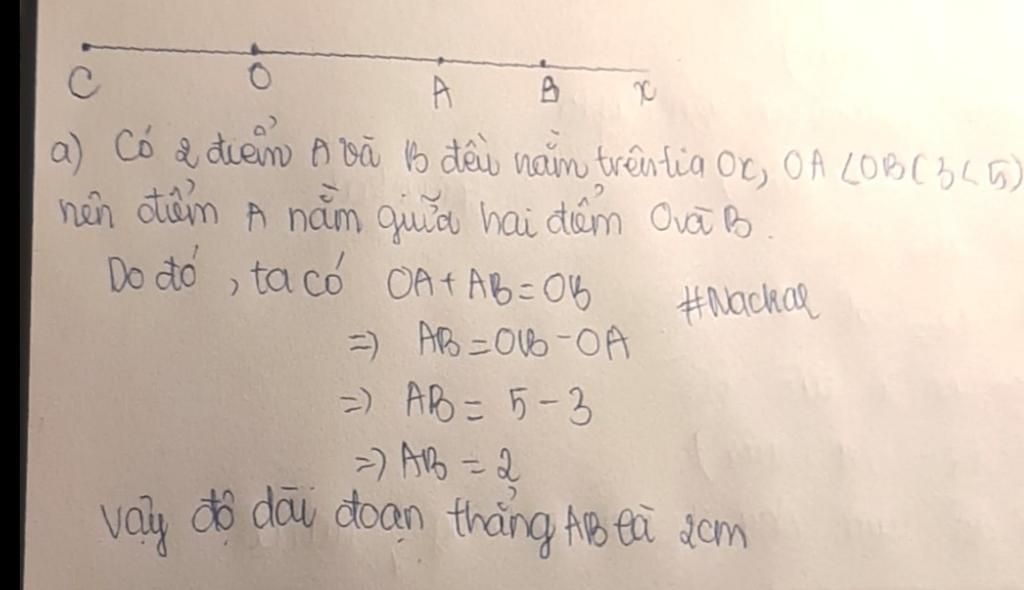 C O A B x
a) Có 2 điểm A và B đều nằm trên tia Ox, OA < OB (3 < 5)
nên điểm A nằm giữa hai điểm O và B.
Do đó, ta có OA + AB = OB
#Nackar
=> AB = OB - OA
=> AB = 5 - 3
=> AB = 2
Vậy độ dài đoạn thẳng AB là 2cm